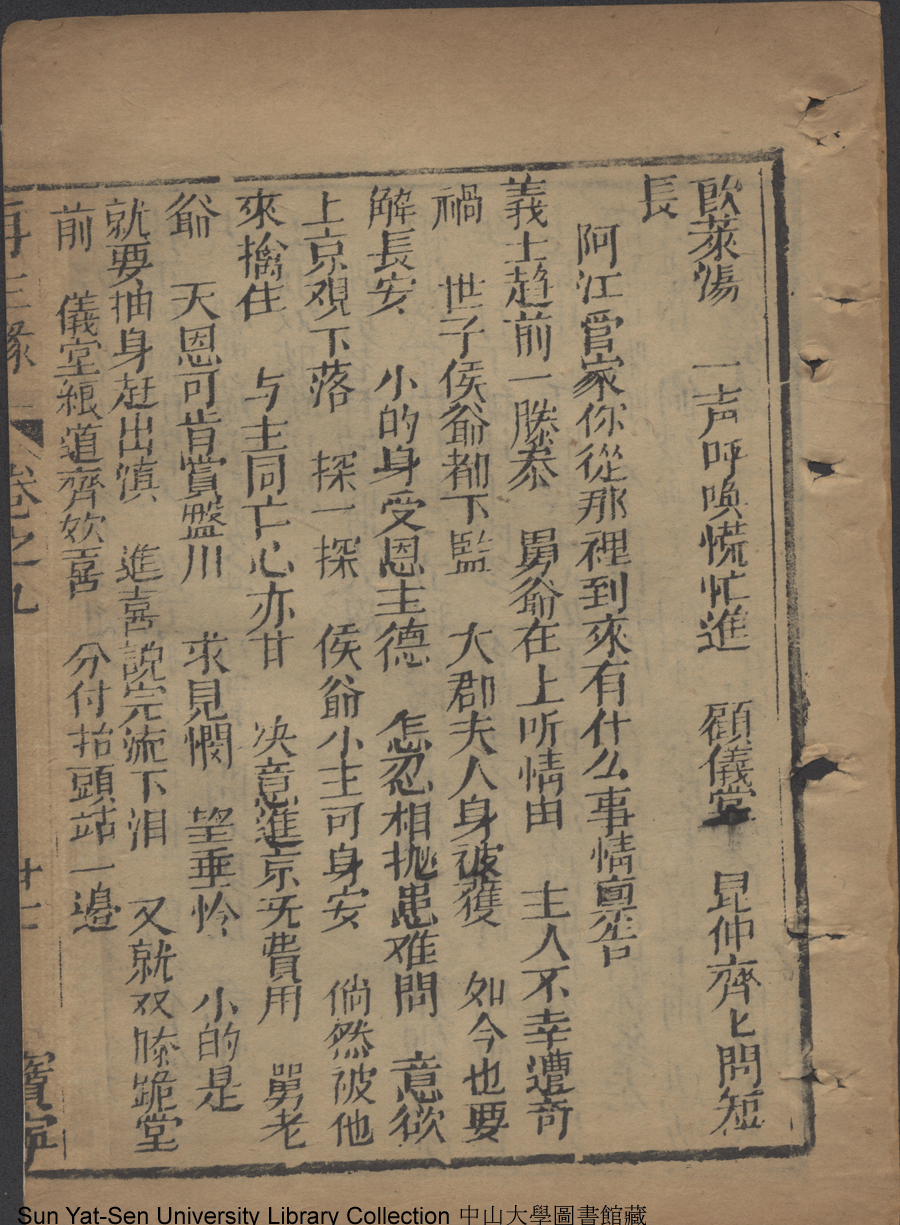 飲茶湯　一声呼喚慌忙進　顧儀堂　昆仲齊匕問短
長
阿江管家你從那裡到來有什么事情稟告
義士趋前一膝恭　舅爺在上听情由　主人不幸遭奇
禍　世子侯爺都下監　大郡夫人身被獲　如今也要
解長安　小的身受恩主德　怎忍相抛患难間　意欲
上京覌下落　探一探　侯爺小主可身安　倘然被他
來擒住　与主同亡心亦甘　决意進京旡費用　舅老
爺　天恩可肯賞盤川　求見憫　望垂怜　小的是
就要抽身赶出滇　進喜說完流下泪　又就双膝跪堂
前　儀堂級道齊欢喜　分付抬頭站一邉
再生緣　卷之九　廿一　寳寧
Sun Yat-Sen University Library Collection 中山大學圖書館藏